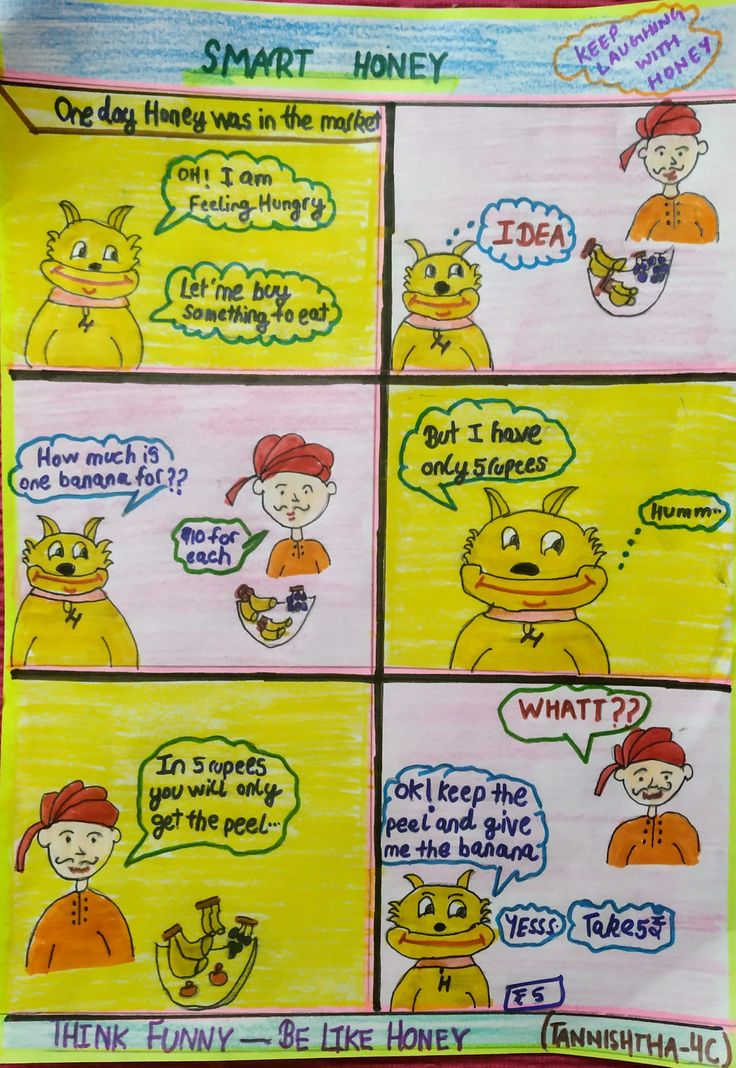 SMART HONEY
KEEP
LAUGHING
WITH
HONEY
One day Honey was in the market
OH! I am
Feeling Hungry
Let'me buy
something to eat
IDEA
How much is
one banana for??
₹10 for
each
But I have
only 5rupees
Humm..
In 5 rupees
you will only
get the peel...
WHATT??
OK! keep the
peel and give
me the banana
YESSS.
Take5₹
₹5
THINK FUNNY — BE LIKE HONEY
(TANNISHTHA-4C)